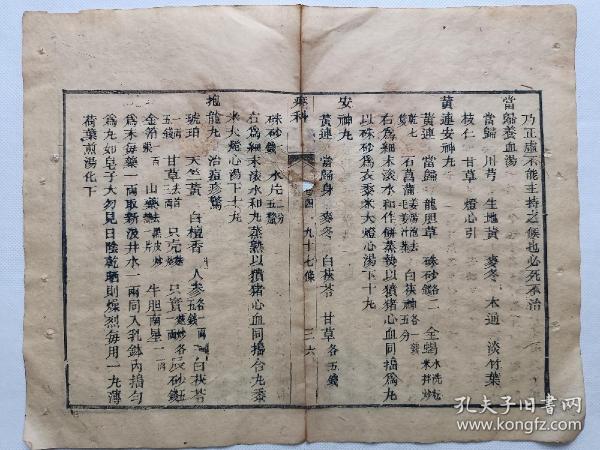 乃正虛不能主持之候也必死不治
當歸養血湯
當歸 川芎 生地黃 麥冬 木通 淡竹葉
枝仁 甘草 燈心引
黃連安神丸
黃連 當歸 龍胆草 硃砂各二 全蝎水洗
乾七 石菖蒲 白茯神各五分
右為細末淡水和作餅蒸熟以獖猪心血同搗為丸
以硃砂為衣黍米大燈心湯下十丸
安神丸
黃連 當歸身 麥冬 白茯苓 甘草各五錢
麻科 卷四 九十七條 三六
硃砂 氷片五分
右為細末淡水和丸蒸熟以獖猪心血同搗合丸黍
米大燈心湯下十丸
抱龍丸 治痘疹驚
琥珀 天竺黃 白檀香 人參 白茯苓
一兩 甘草 只壳 只實 辰砂五
金箔 山藥 牛胆南星一兩
為末每藥一兩取新汲井水一兩同入乳鉢內搗勻
為丸如皂子大勿見日陰乾晒則燥烈每用一丸薄
荷葉煎湯化下
孔夫子旧书网